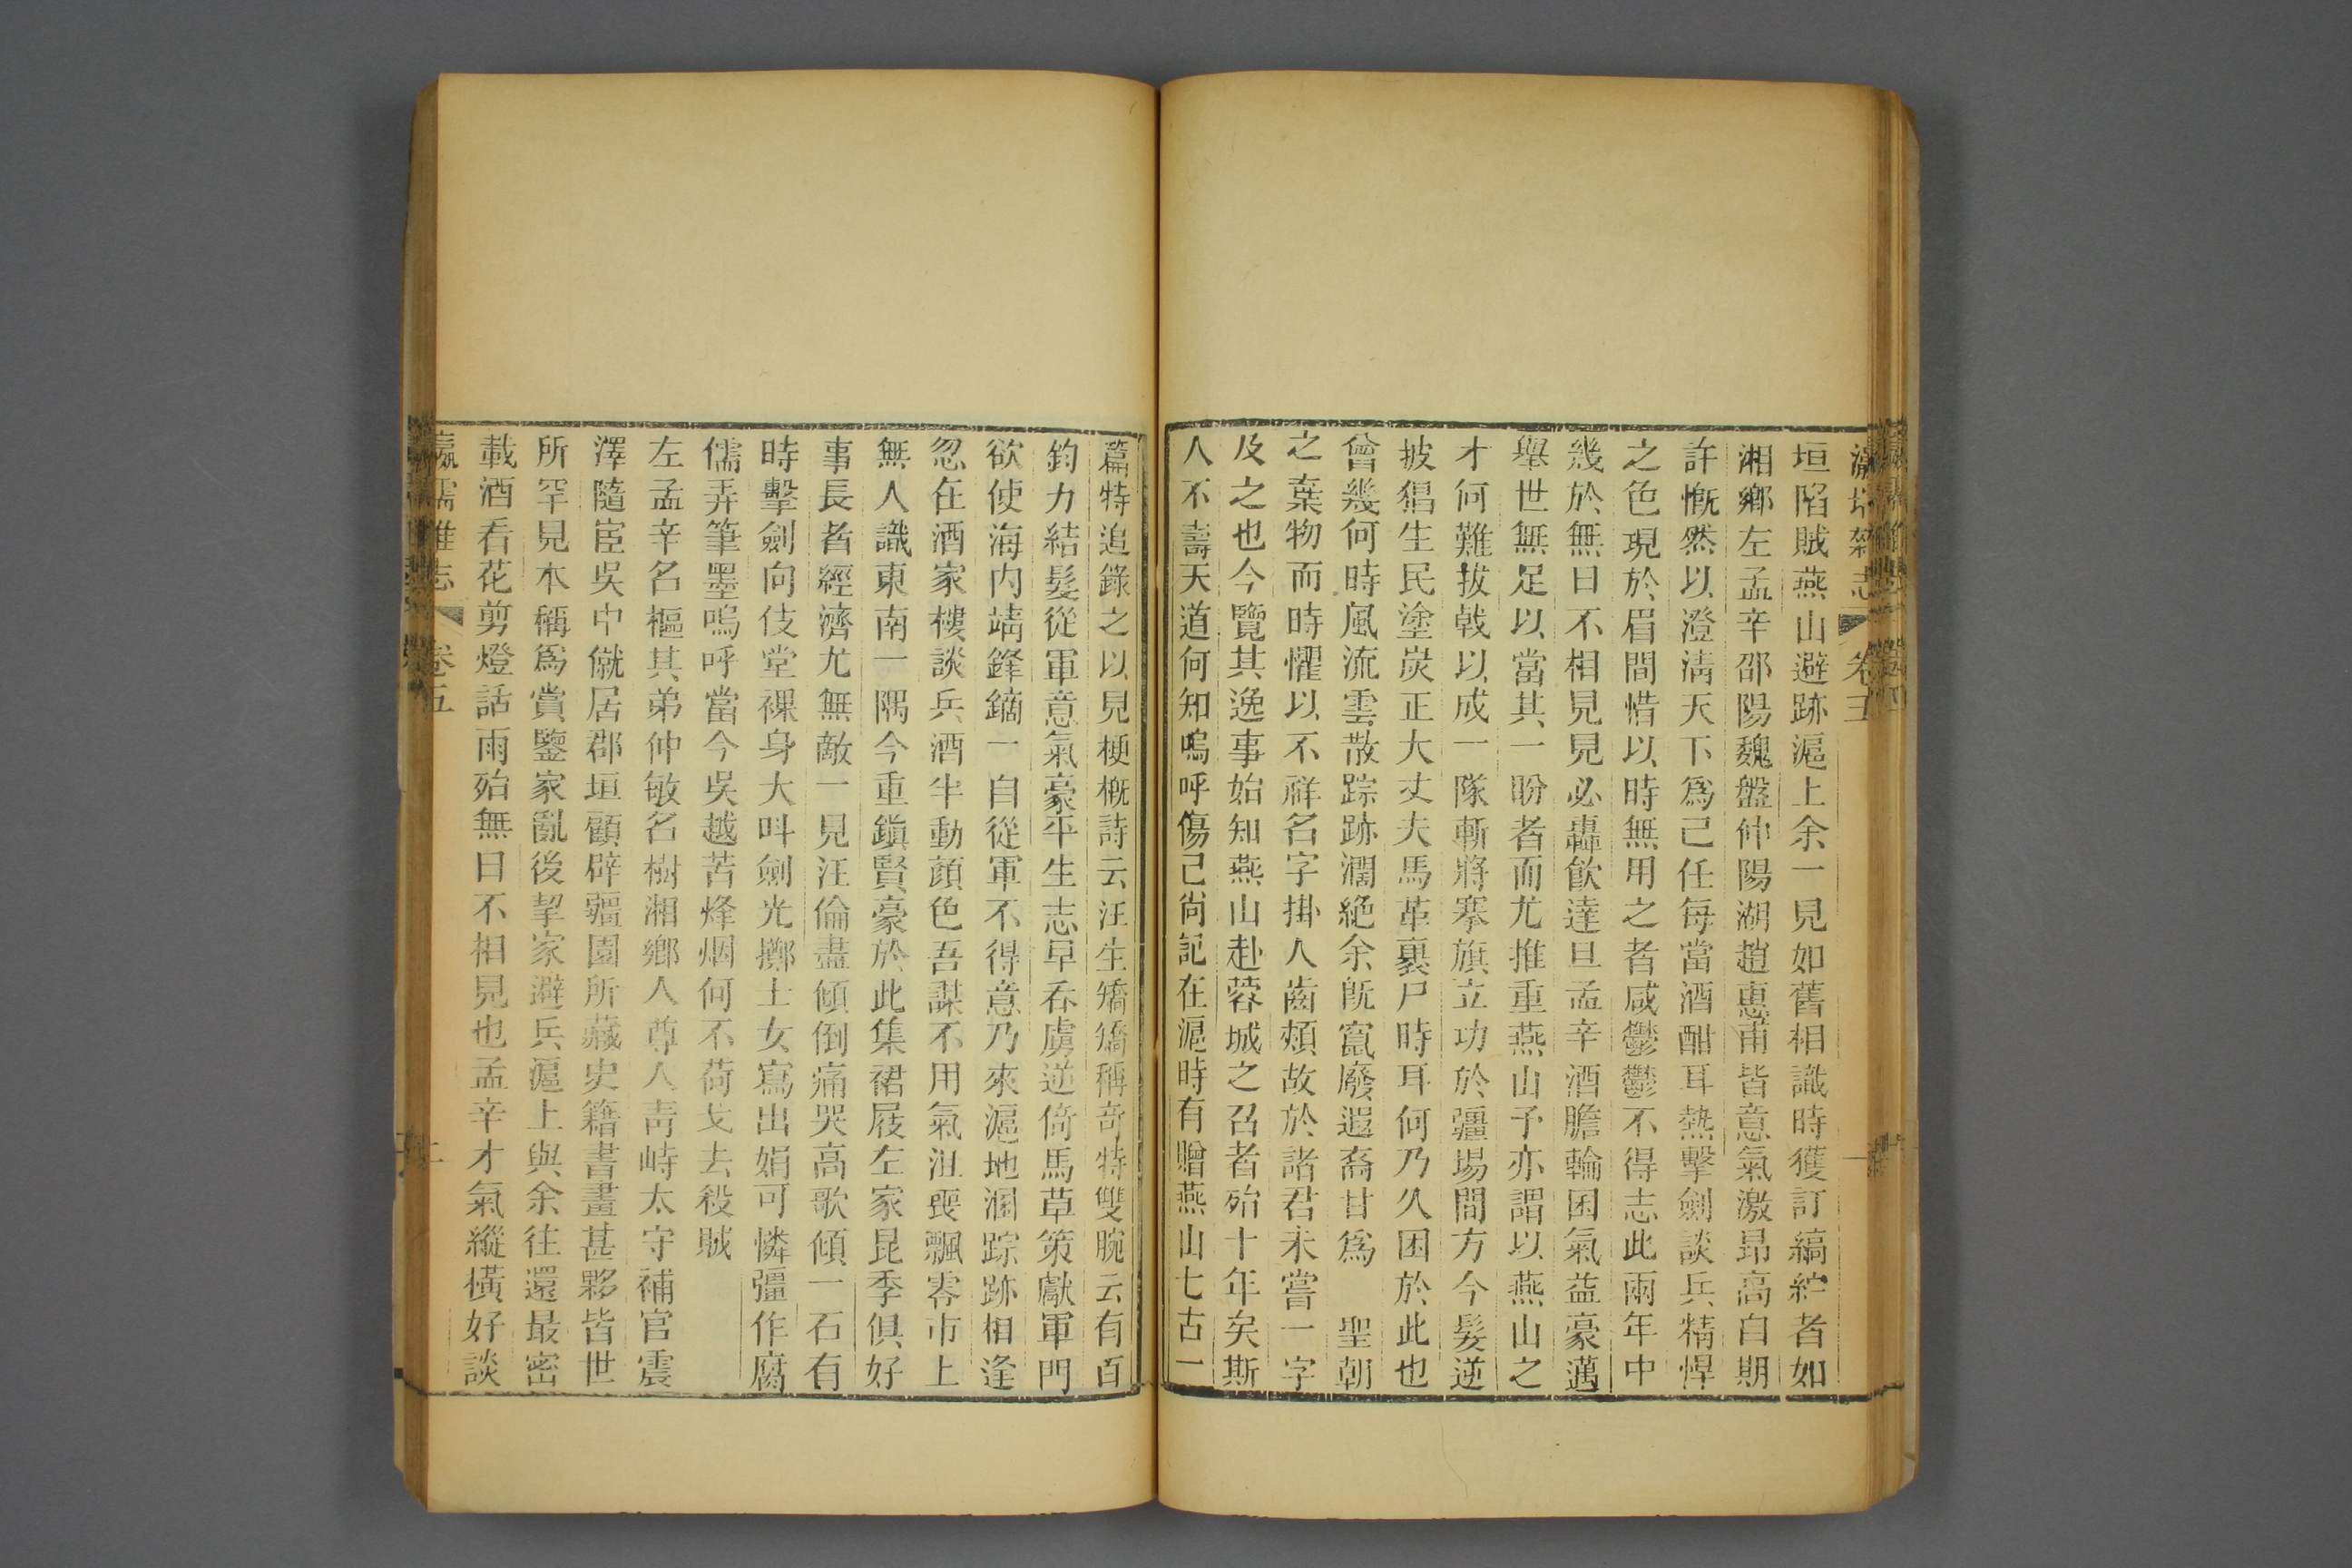 瀛壖雜志 卷五
垣陷賊燕山避跡滬上余一見如舊相識時獲訂縞紵者如
湘鄉左孟辛邵陽魏盤仲陽湖趙惠甫皆意氣激昂高自期
許慨然以澄淸天下爲己任每當酒酣耳熱擊劍談兵精悍
之色現於眉間惜以時無用之者咸鬱鬱不得志此兩年中
幾於無日不相見見必轟飮達旦孟辛酒膽輪囷氣益豪邁
舉世無足以當其一盼者而尤推重燕山予亦謂以燕山之
才何難拔戟以成一隊斬將搴旗立功於疆場間方今髮逆
披猖生民塗炭正大丈夫馬革裹尸時耳何乃久困於此也
曾幾何時風流雲散踪跡濶絶余旣竄廢遐裔甘爲 聖朝
之棄物而時懼以不祥名字掛人齒頰故於諸君未嘗一字
及之也今覽其逸事始知燕山赴蓉城之召者殆十年矣斯
人不壽天道何知嗚呼傷已尙記在滬時有贈燕山七古一
篇特追錄之以見梗槪詩云汪生矯矯稱奇特雙腕云有百
鈞力結髮從軍意氣豪平生志早吞虜逆倚馬草策獻軍門
欲使海內靖鋒鏑一自從軍不得意乃來滬地溷踪跡相逢
忽在酒家樓談兵酒半動顏色吾謀不用氣沮喪飄零市上
無人識東南一隅今重鎭賢豪於此集裙屐左家昆季俱好
事長者經濟尤無敵一見汪倫盡傾倒痛哭高歌傾一石有
時擊劍向伎堂裸身大呌劍光擲士女寫出娟可憐彊作腐
儒弄筆墨嗚呼當今吳越苦烽烟何不荷戈去殺賊
左孟辛名樞其弟仲敏名樹湘鄉人尊人靑峙太守補官震
澤隨宦吳中僦居郡垣顧辟疆園所藏史籍書畫甚夥皆世
所罕見本稱爲賞鑒家亂後挈家避兵滬上與余往還最密
載酒看花剪燈話雨殆無日不相見也孟辛才氣縱橫好談
瀛壖雜志 卷五